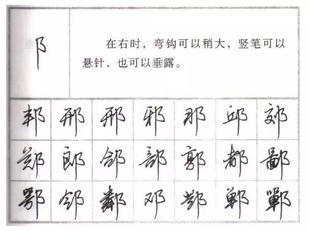 阝
在右时，弯钩可以稍大，竖笔可以
悬针，也可以垂露。
邦 邢 邪 那 邱 郊
郑 郎 部 郭 都 鄙
鄂 邻 邓 鄞 郸